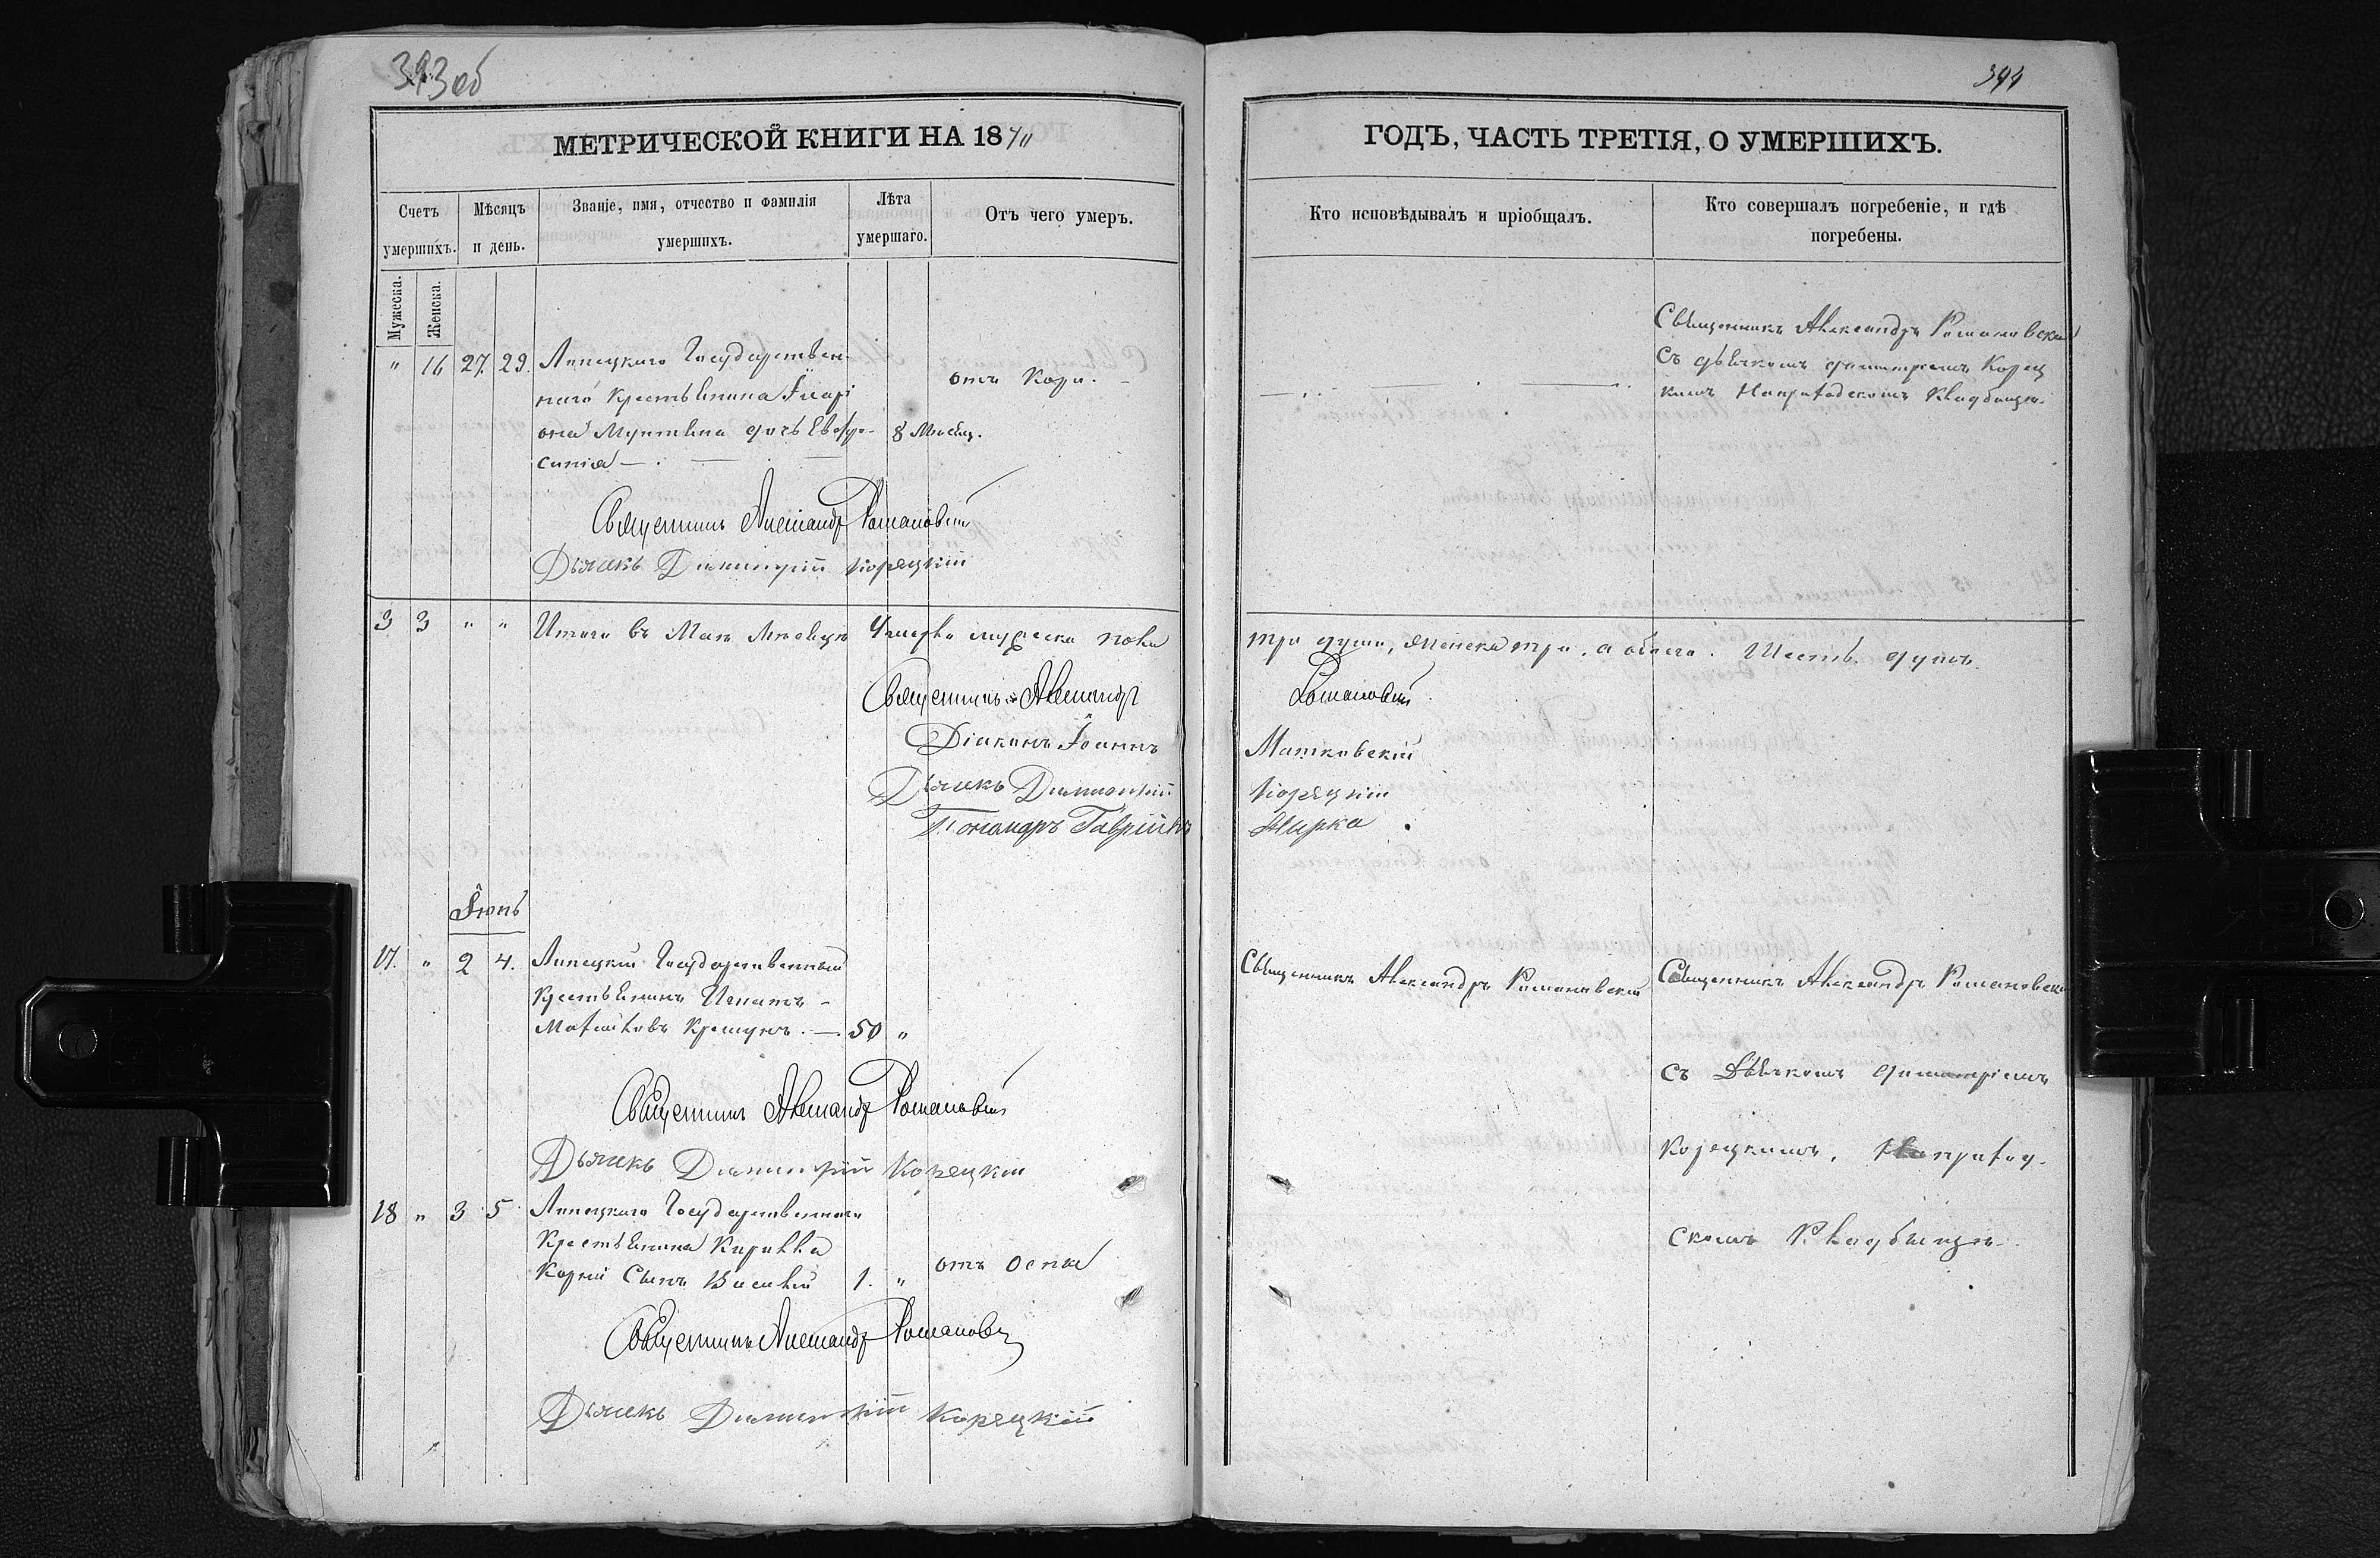 393 об
394
МЕТРИЧЕСКОЙ КНИГИ НА 1870
ГОДЪ, ЧАСТЬ ТРЕТІЯ, О УМЕРШИХЪ.
Счетъ умершихъ.
Мѣсяцъ и день.
Званіе, имя, отчество и фамилія умершихъ.
Лѣта умершаго.
Отъ чего умеръ.
Кто исповѣдывалъ и пріобщалъ.
Кто совершалъ погребеніе, и гдѣ погребены.
Мужеска.
Женска.
" 16 27. 29. Липецкаго Государствен-
наго Крестьянина Іларі
она дочь Евфро-
синія
8 Мѣсяц.
отъ Кори.
Священникъ Александръ Романовскій
Съ дьячкомъ Димитріемъ Корец
кимъ на приходскомъ Кладбищѣ.
Священникъ Александръ Романовскій
Дьячекъ Димитрій Корецкій
3 3 " " Итого въ Маѣ Мѣсяцѣ Умерло мужеска пола
три души, женска три, а обоего Шесть душъ.
Священникъ Александръ Романовскій
Діаконъ Іоаннъ
Дьячекъ Димитрій Корецкій
Пономарь Гавріилъ
Іюнь
17. " 2 4. Липецкій Государственный
Крестьянинъ Игнатъ
50 "
Священникъ Александръ Романовскій
Священникъ Александръ Романовскій
съ Дьячкомъ Димитріемъ
Корецкимъ, На приход-
скомъ Кладбищѣ.
Священникъ Александръ Романовскій
Дьячекъ Димитрій Корецкій
18 " 3 5 Липецкаго Государственнаго
Крестьянина Кирилла
Корній Сынъ Василій 1. " отъ оспы
Священникъ Александръ Романовскій
Дьячекъ Димитрій Корецкій